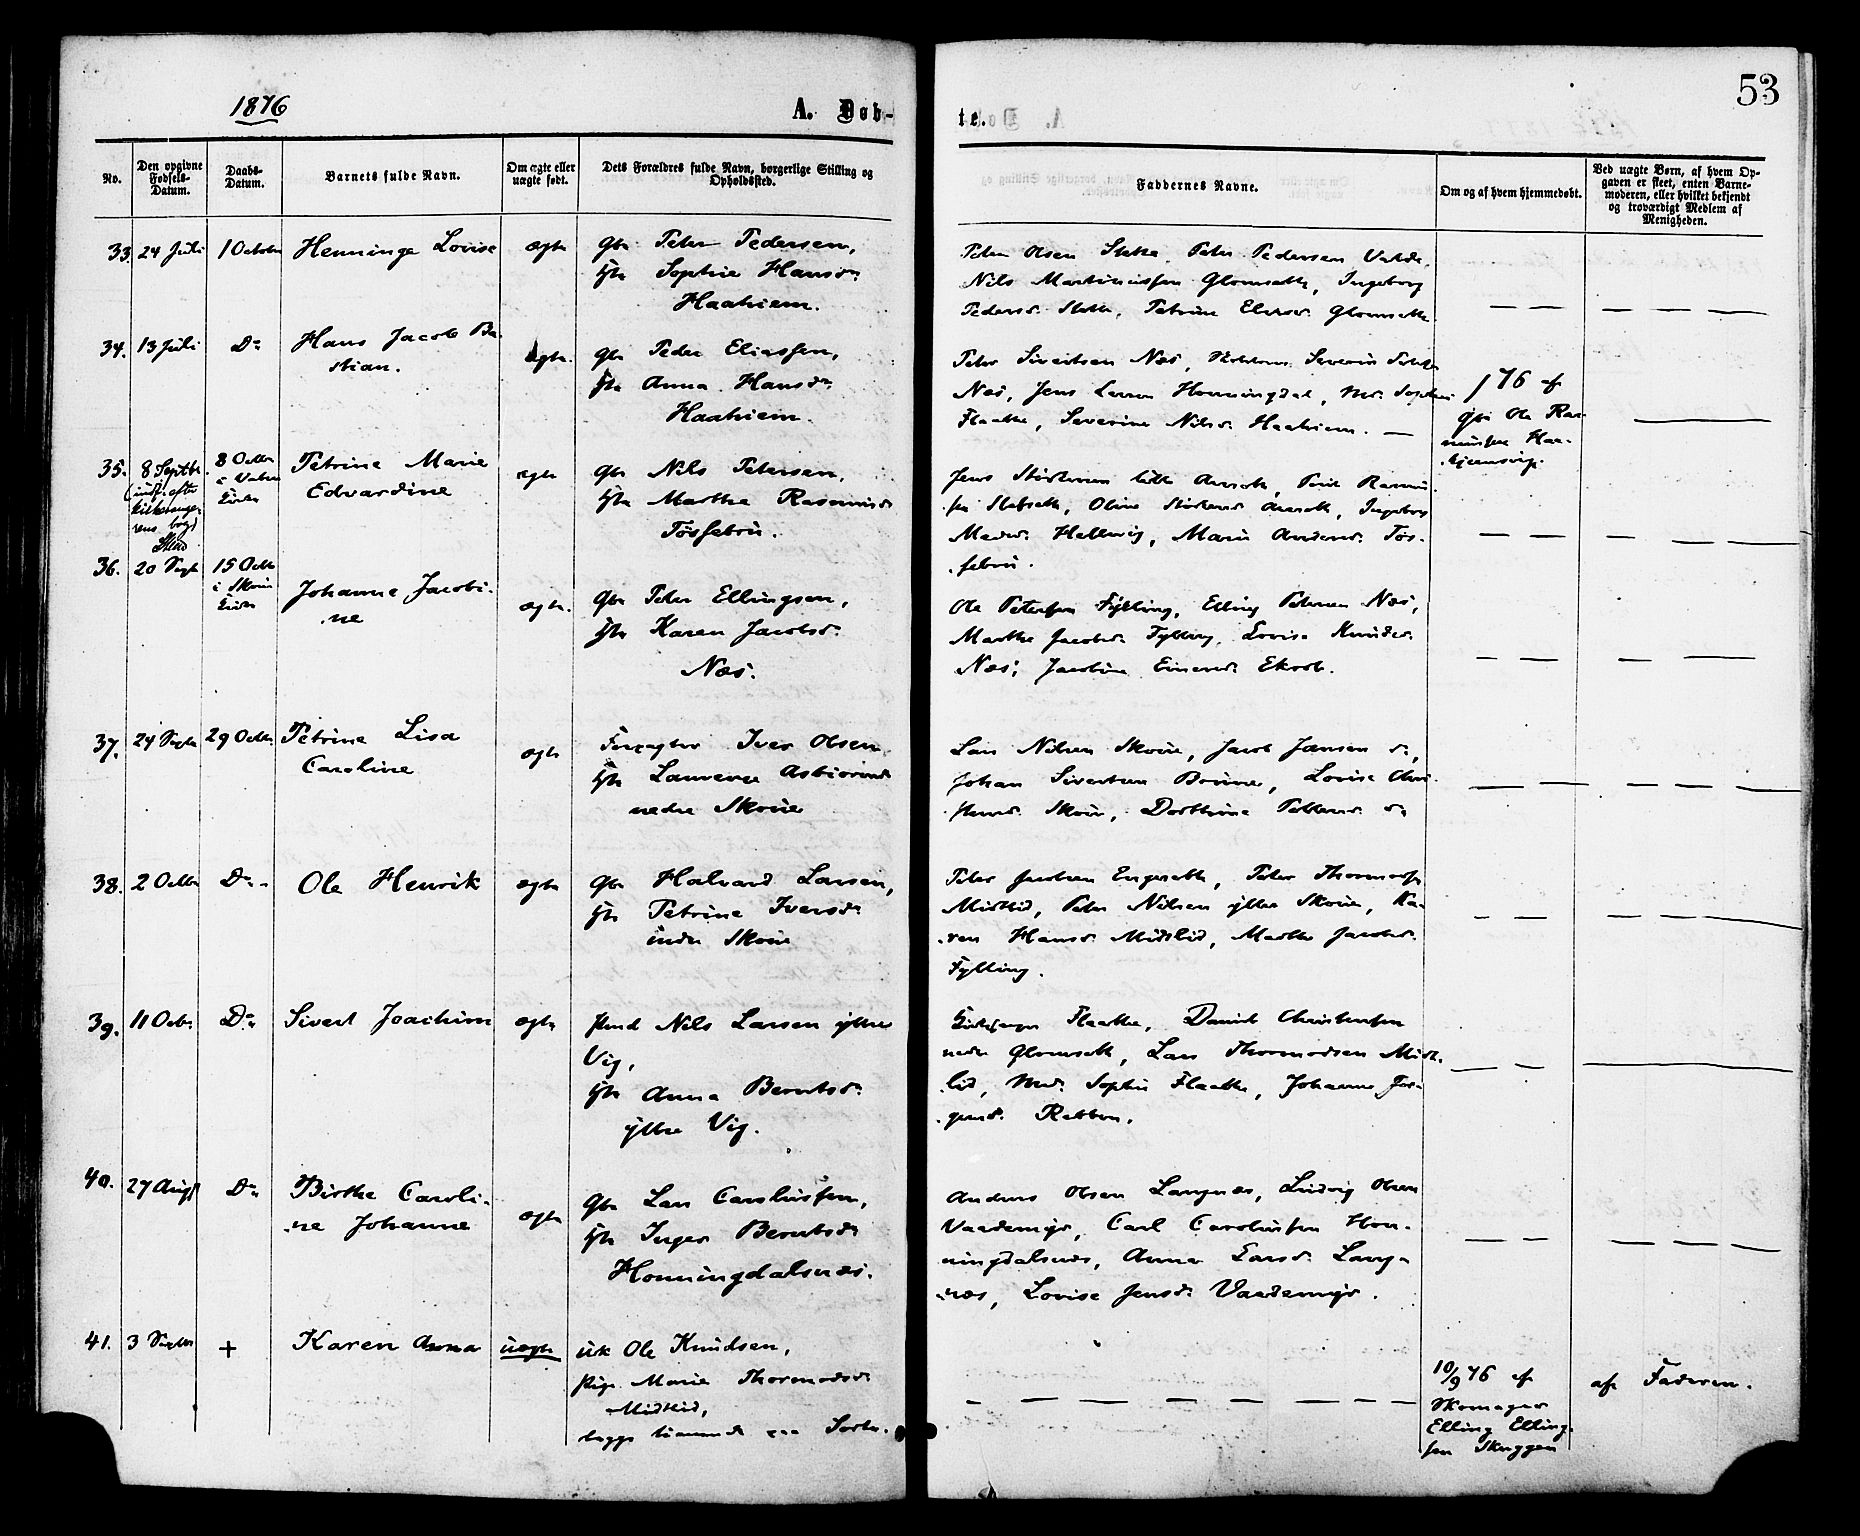 1876
A. Døb-
te.
53
No.
Den opgivne Fødsels-Datum.
Daabs-Datum.
Barnets fulde Navn.
Om ægte eller uægte født.
Dets Forældres fulde Navn, borgerlige Stilling og Opholdssted.
Faddernes Navne.
Om og af hvem hjemmedøbt.
Ved uægte Børn, af hvem Opgaven er skeet, enten Barnemoderen, eller hvilket bekjendt og troværdigt Medlem af Menigheden.
33. 24 Juli 1 Octobr Henninge Lovise ægte Gbr Peter Pedersen,
Hst Sophie Hansdr
Haahiem.
Peter Olsen Slette, Peter Pedersen
Nils Martinussen Glomsetth, Ingeborg
Pedersd. Slette, Petrine Glomsetth
34. 13 Juli Do Hans Jacob Ba-
stian.
ægte. Gbr Peder Eliassen,
Hst Anna Hansdr
Haahiem.
Peter Sivertsen Næs, Severin
Næs, Jens Larsen Honningdal, Md. Sophie
Flaathe, Severine Nilsd. Haahiem. —
76 af
Gbr Ole Ras-
mussen Haa-
hjemsvig.
35. 8 Septbr 8 Octbr Petrine Marie
Edvardine
ægte Gbr Nils Petersen,
Hst Marthe Rasmusd
Tøssebru.
Ingeborg
Hellevig, Marie Andersd. Tøs-
sebru.
36. 20 Sept 15 Octb i Skoue Kirke
Johanne Jacobi-
ne
ægte. Gbr Peter Ellingsen,
Hst Karen Jacobsd.
Næs.
Ole Petersen Fylling, Elling Petersen Næs,
Marthe Jacobsd. Fylling, Lovise Knudsd.
Næs, Jacobine Einarsd. Ekroll.
37. 24 Septbr 29 Octbr. Petrine Lisa
Caroline
ægte Forpagter Iver Olsen
Hst Laurense Asbiørnsd
nedre Skoue
Lars Nilsen Skoue, Jacob Jansen do,
Johan Sivertsen Brune, Lovise
Skoue, Dorthine Pettersd. do
38. 2 Octbr Do Ole Henrik ægte Gbr Halvard Larsen,
Hst Petrine Iversdr
indre Skoue
Peter Jacobsen Engesetth, Peter Thormodsen
Midtlid, Peter Nilsen ytre Skoue, Ka-
ren Hansd. Midtlid, Marthe Jacobsd.
Fylling.
39. 11 Octbr. Do Sivert Joachim ægte Nils Larsen ytre
Vig,
Hst Anna Berntsd.
ytre Vig.
Kirkesanger Flaathe, Daniel Christensen
nedre Glomsetth, Lars Thormodsen Midt-
lid, Md. Sophie Flaathe, Johanne Jør-
gensd. Rebben.
40. 27 Aug Do Birthe Caroli-
ne Johanne
ægte Gbr Lars Carolussen,
Hst Inger Berntsdr
Honningdalsnæs.
Anders Olsen Langnæs, Ludvig Olsen
Vaademyr, Carl Carolussen Hon-
ningdalsnæs, Anna Larsd. Lang-
næs, Lovise Jensd. Vaademyr.
41. 3 Septbr + Karen Anna uægte Uk Ole Knudsen,
Pige Marie Thormodsdr
Midtlid,
begge tienende paa
10/9 76 af
Skomager
Elling Elling-
sen Skuggen
af Faderen.